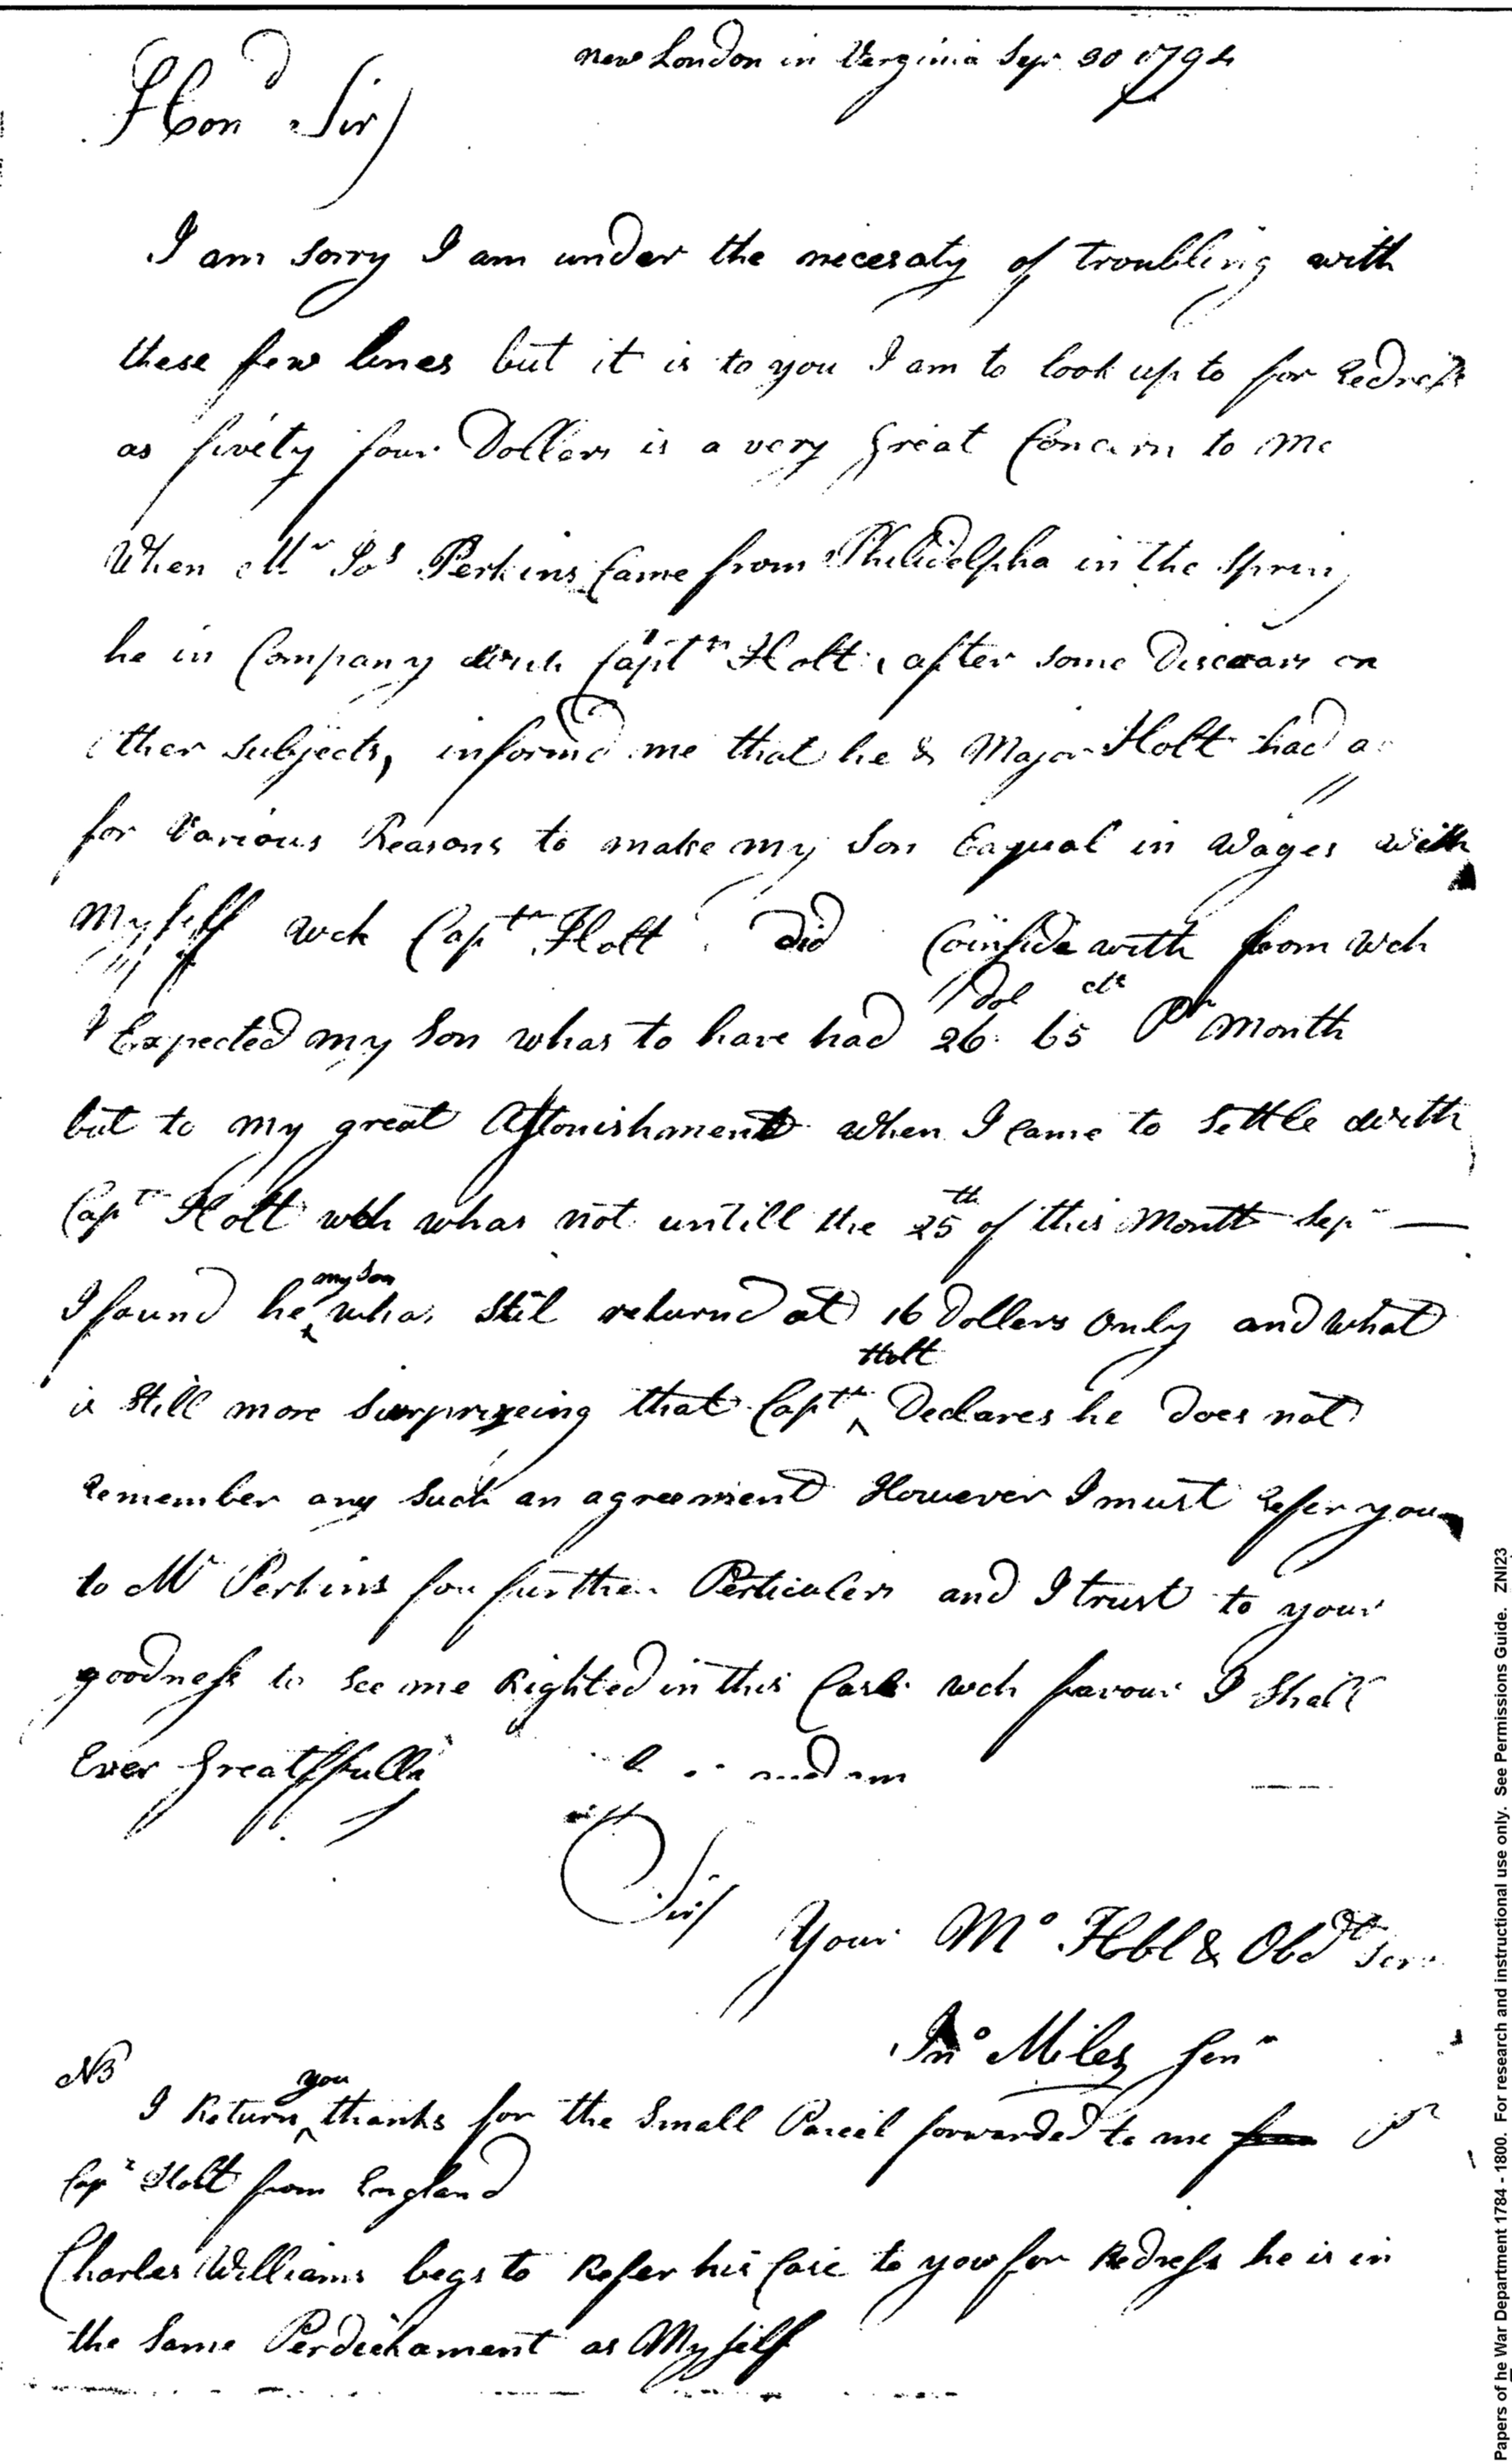 new London in Verginia Sepr 30 1794
Hond Sir
I am sorry I am under the necesaty of troubling with
these few lines but it is to you I am to look up to for Redress
as fivety four Dollars is a very great Concern to me
When Mr Jos Perkins Came from Philidelpha in the Spring
he in Company with Captn Holt, after some Discoars on
other subjects, informd me that he & Major Holt had
for Various Reasons to make my Son Eaqual in Wages with
My self wch Captn Holt did Coinside with from wch
I Expected my Son whas to have had 26 dol 65 cts Pr Month
but to my great Astonishment when I Came to Settle with
Capt Holt wch whas not untill the 25th of this Month Sepr
I found he my Son whas Stil returnd at 16 Dollers Only and what
is Still more Surprizeing that Captn Holt Declares he Does not
Remember any Such an agreement However I must Refer you
to Mr Perkins for further Perticulers and I trust to your
goodness to See me Righted in this Case wch favour I Shall
Ever Greatffully and am
Sir
Your Mo Hbl & Obdt Ser
Jno Miles Senr
NB
I Return you thanks for the Small Parcel forwarded to me pr
Capt Holt from England
Charles Williams begs to Refer his Case to you for Redress he is in
the Same Perdickament as My Self
Papers of he War Department 1784 - 1800. For research and instructional use only. See Permissions Guide. ZNI23